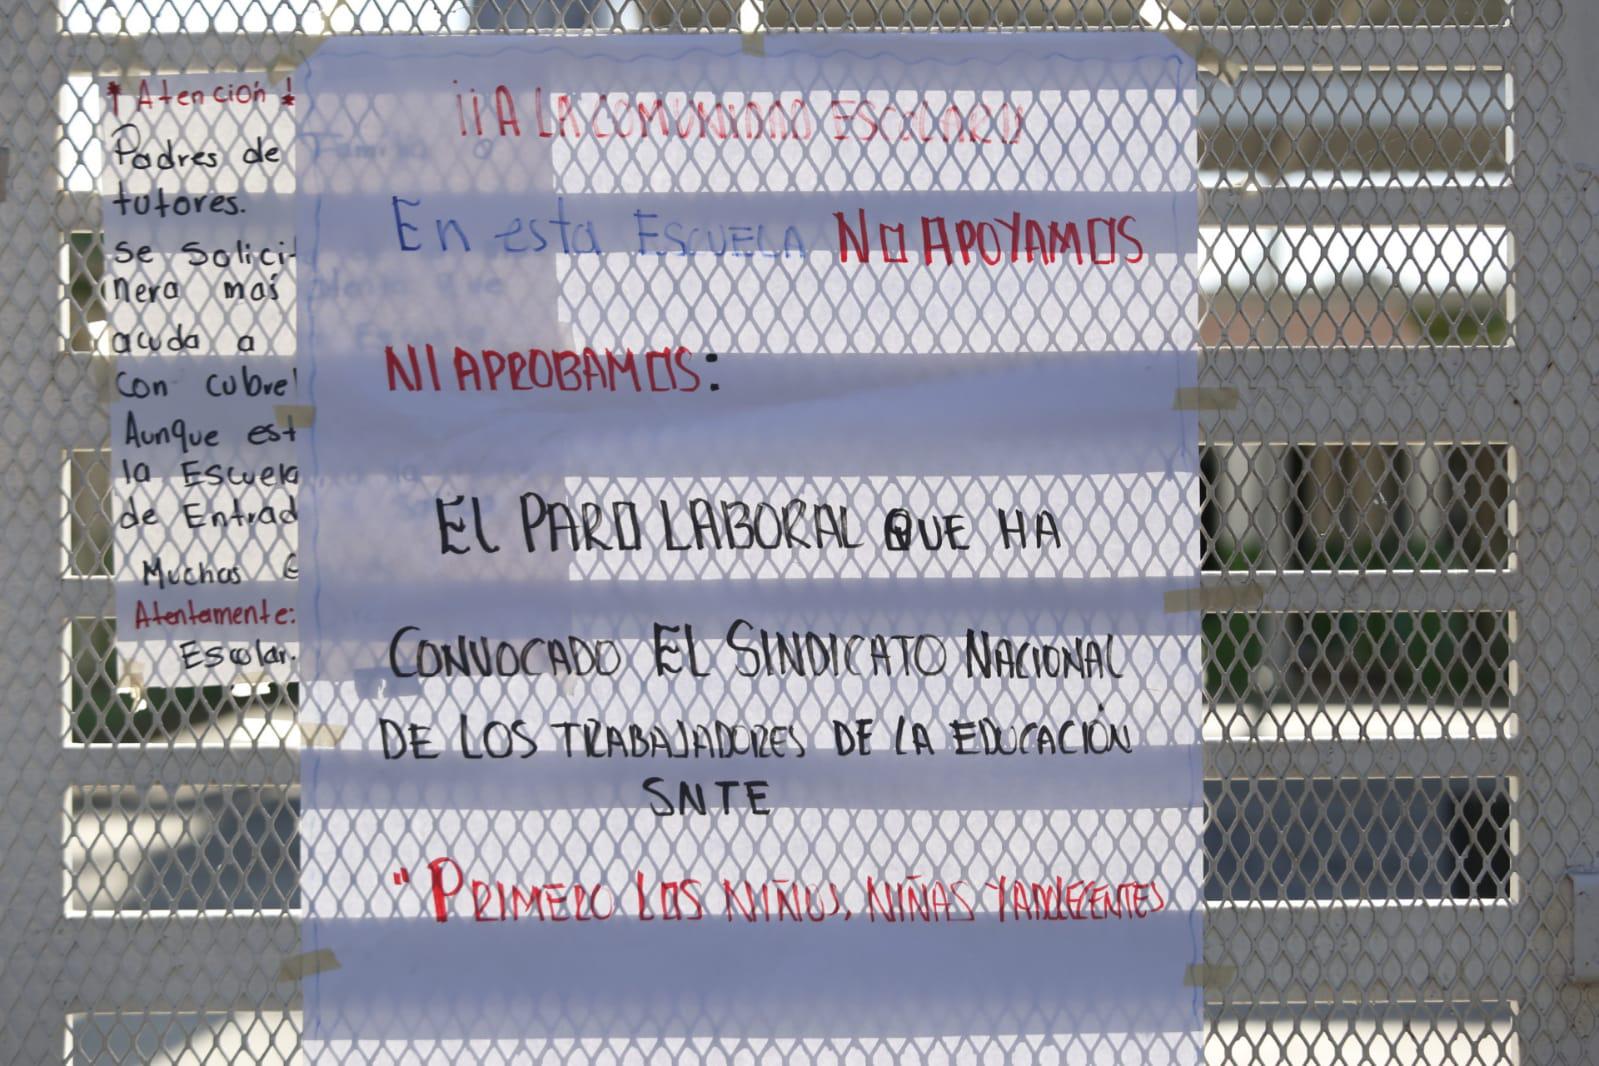 ¡Atención!
Padres de Familia o
tutores.
se solici-
nera mas
acuda a
con cubre
Aunque est
la Escuela
de Entrad
Muchas G
Atentamente:
Escolar.
¡¡A LA COMUNIDAD ESCOLAR!!
En esta ESCUELA NO APOYAMOS
NI APROBAMOS:
EL PARO LABORAL QUE HA
CONVOCADO EL SINDICATO NACIONAL
DE LOS TRABAJADORES DE LA EDUCACIÓN
SNTE
"PRIMERO LOS NIÑOS, NIÑAS Y ADOLECENTES